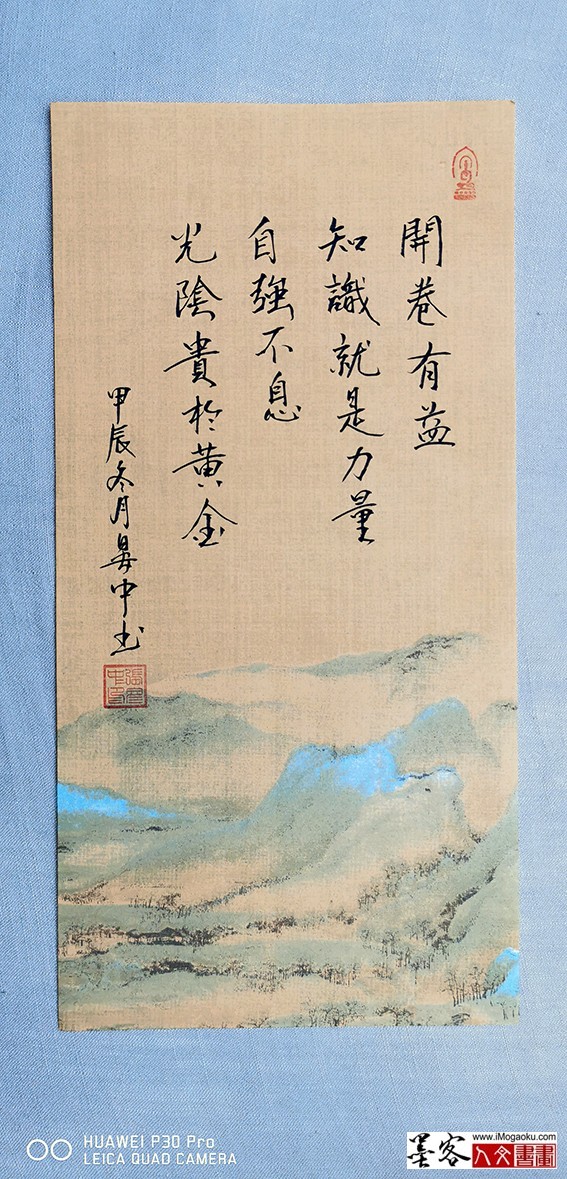 開卷有益
知識就是力量
自強不息
光陰貴於黃金
甲辰冬月昊中书
HUAWEI P30 Pro
LEICA QUAD CAMERA
www.iMogaoku.com
墨客
人文書畫